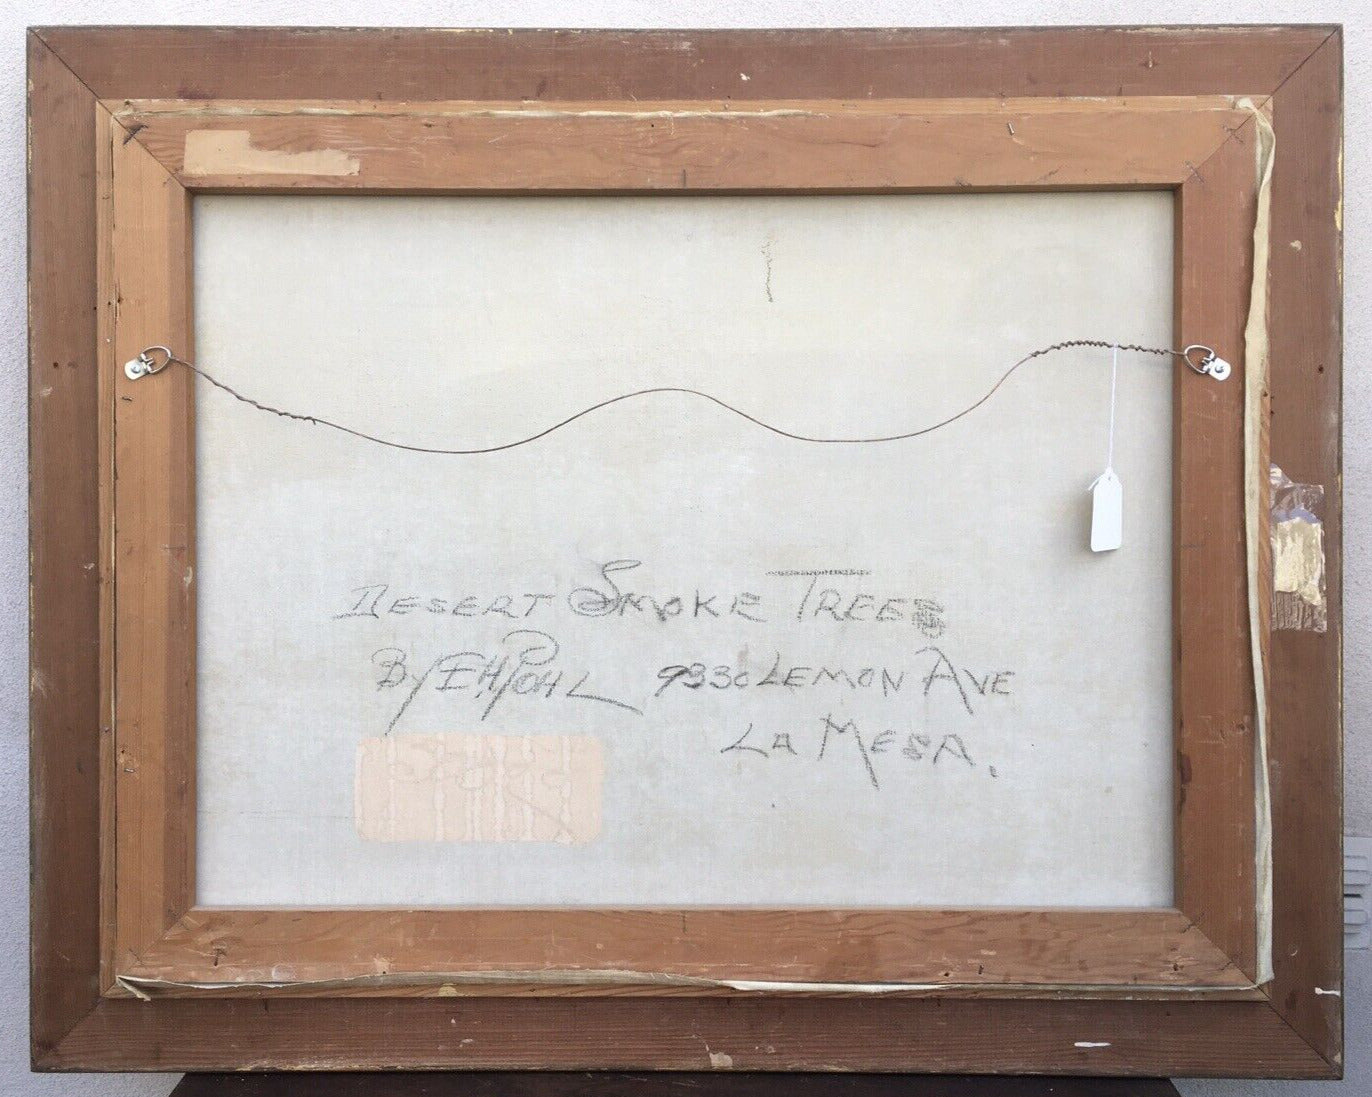 DESERT SMOKE TREES
By E H POHL 9330 LEMON AVE
LA MESA.